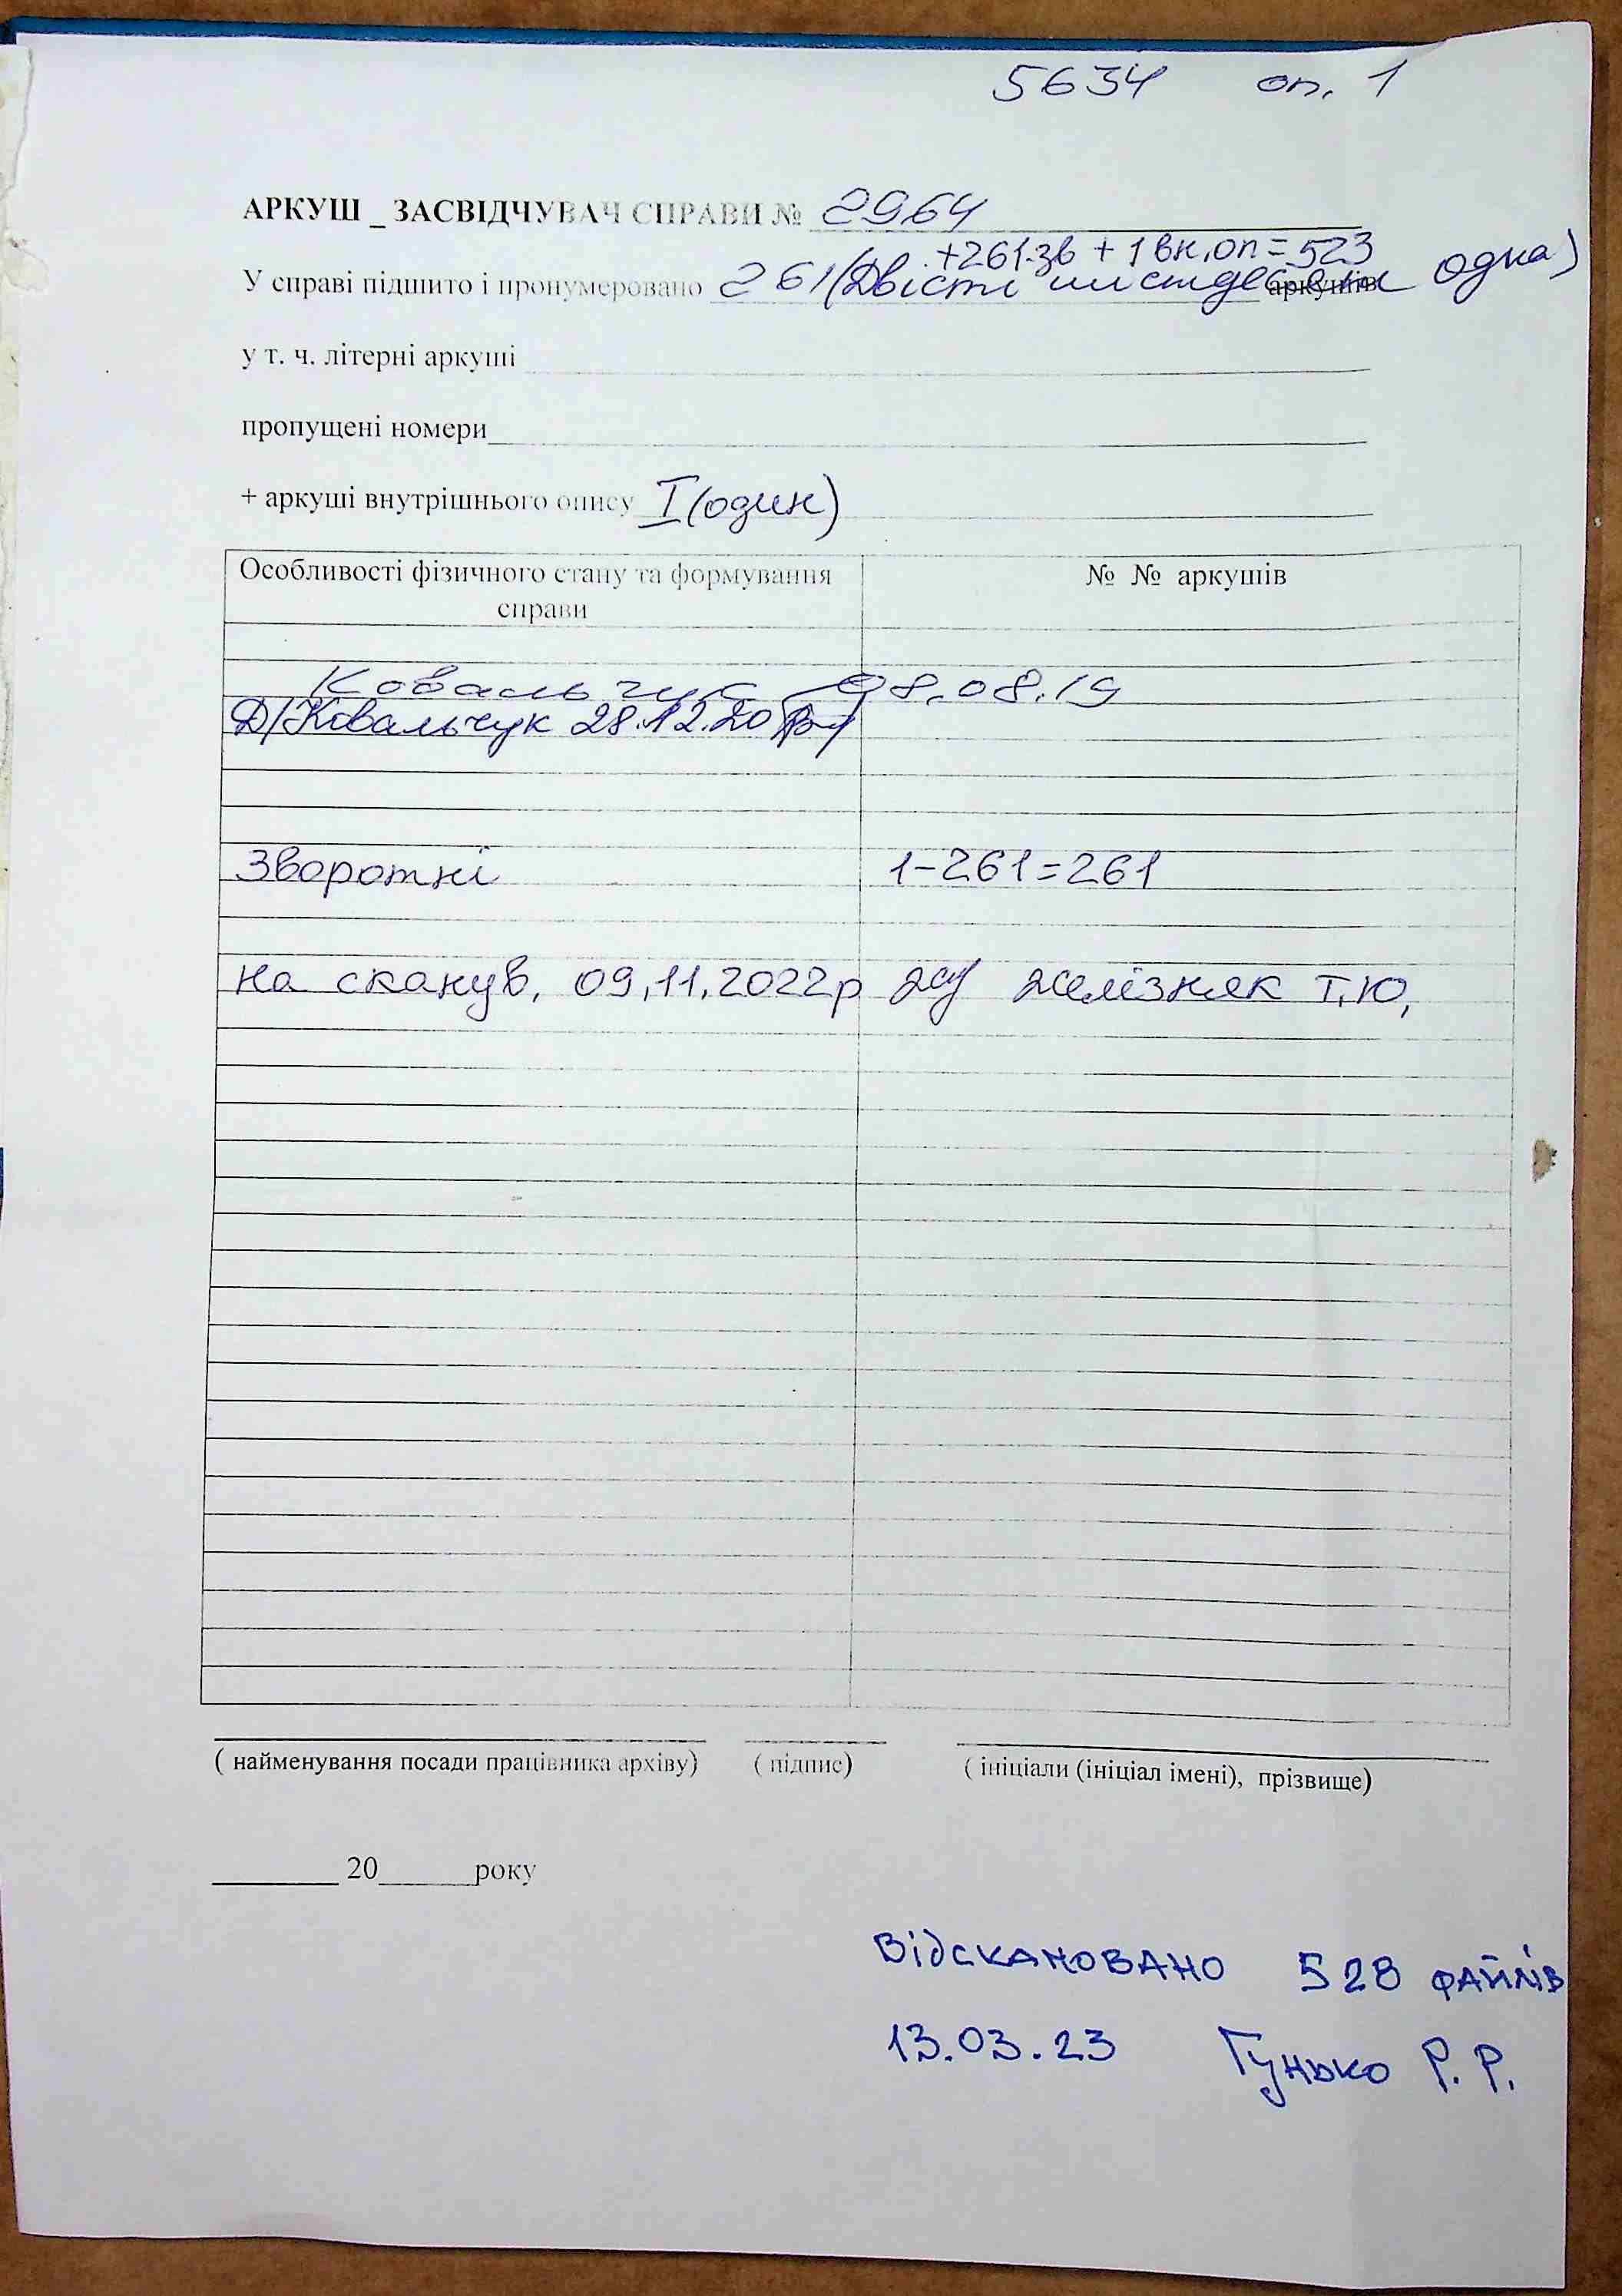 5634 оп. 1
АРКУШ _ ЗАСВІДЧУВАЧ СПРАВИ № 2964
+261зв + 1 вн.оп = 523
У справі підшито і пронумеровано 261 (Двісті шістдесят одна) аркушів
у т. ч. літерні аркуші
пропущені номери
+ аркуші внутрішнього опису I (один)
Особливості фізичного стану та формування справи № № аркушів
Ковальчук 08.08.19
Д/Ковальчук 28.12.20
Зворотні 1-261=261
на сканув. 09.11.2022р Желізняк Т.Ю.
( найменування посади працівника архіву) ( підпис) ( ініціали (ініціал імені), прізвище)
20 року
Відскановано 528 файлів
13.03.23 Гунько Р. Р.